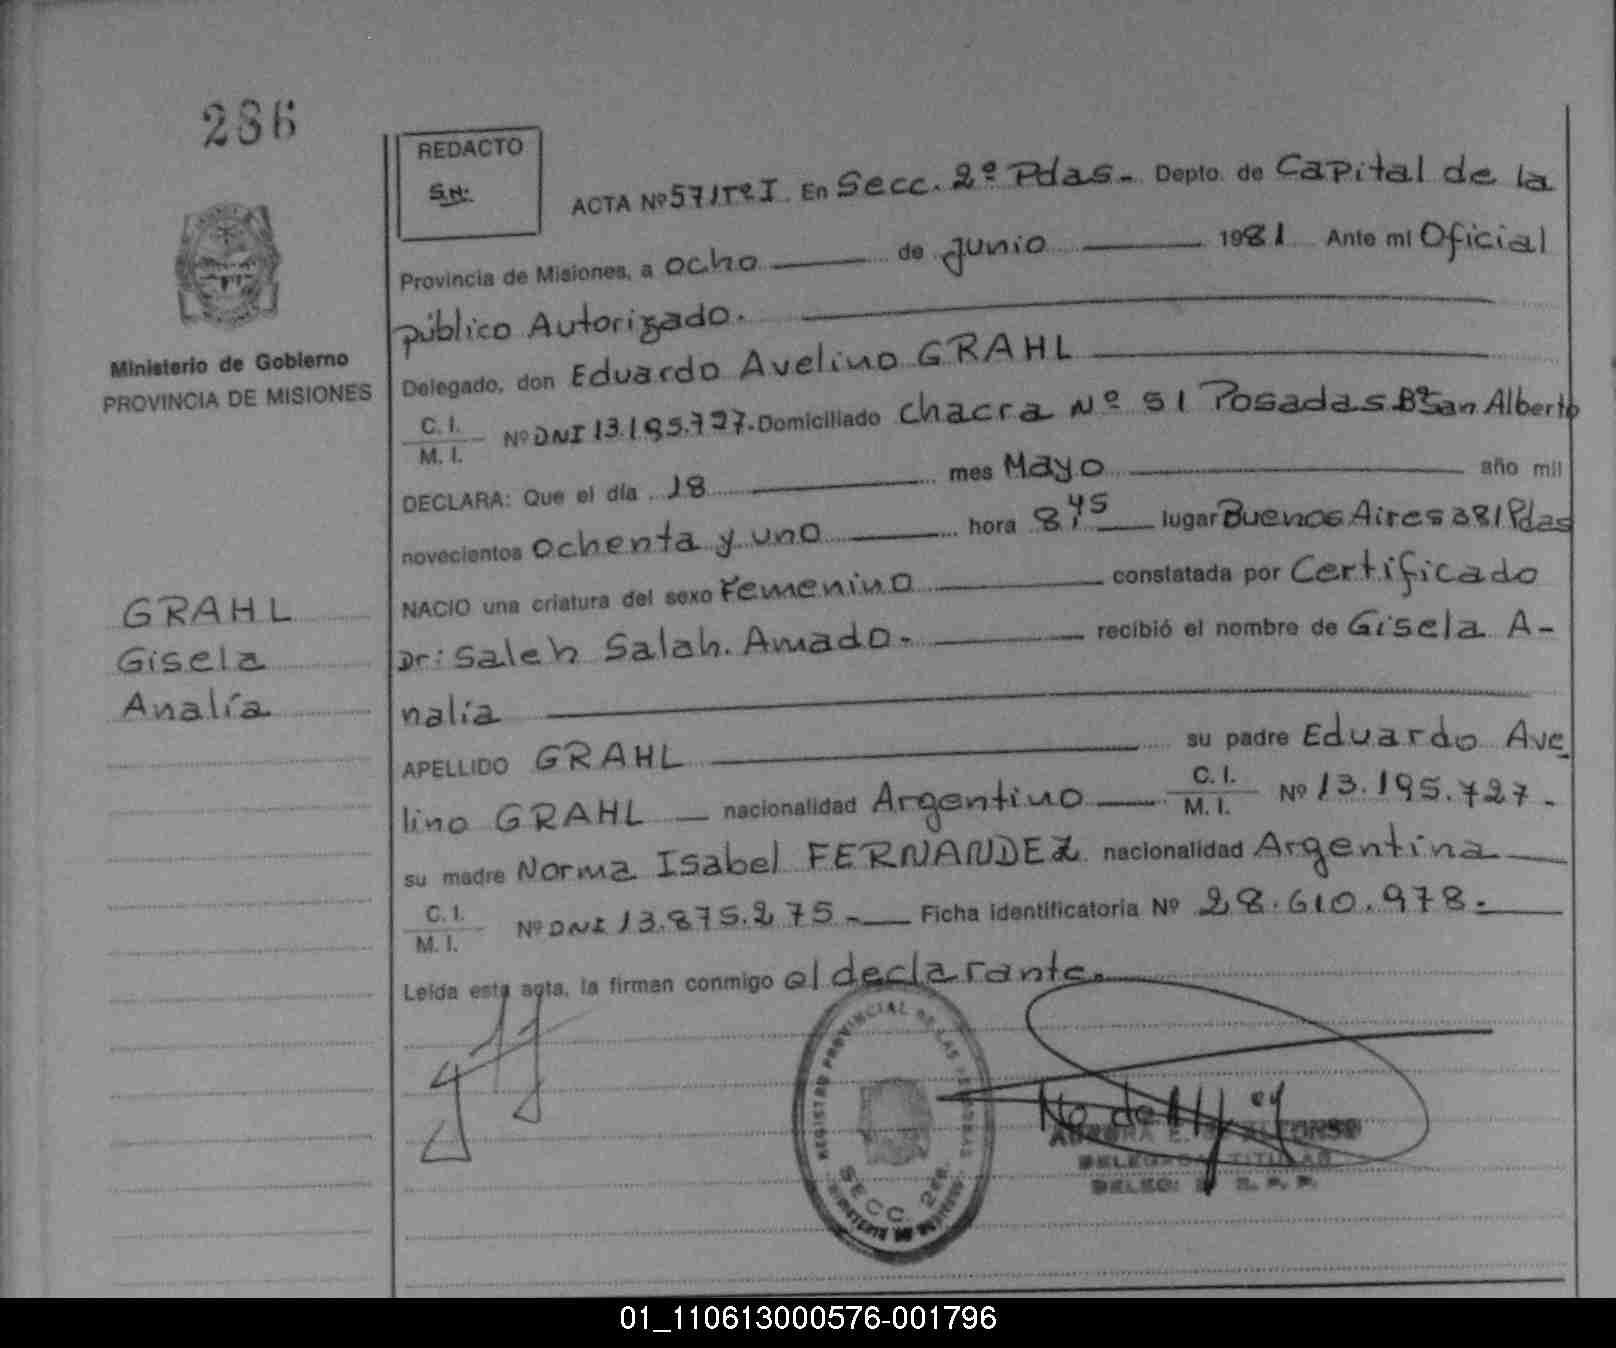 286
REDACTO
S.N:
ACTA Nº 571 Tº I. En Secc. 2º Pdas.- Depto. de Capital de la
Provincia de Misiones, a ocho de junio 1981 Ante mi Oficial
público Autorizado.
Ministerio de Gobierno
PROVINCIA DE MISIONES
Delegado, don Eduardo Avelino GRAHL
C. I.
M. I. Nº DNI 13.195.727. Domiciliado chacra Nº 51 Posadas Bº San Alberto
DECLARA: Que el día 18 mes Mayo año mil
novecientos ochenta y uno hora 8,45 lugar Buenos Aires 381 Pdas
NACIO una criatura del sexo Femenino constatada por Certificado
Dr: Saleh Salah. Amado.- recibió el nombre de Gisela A-
nalía
GRAHL
Gisela
Analía
APELLIDO GRAHL su padre Eduardo Ave
lino GRAHL nacionalidad Argentino C. I.
M. I. Nº 13.195.727.
su madre Norma Isabel FERNANDEZ nacionalidad Argentina
C. I.
M. I. Nº DNI 13.875.275.- Ficha identificatoria Nº 28.610.978.
Leída esta acta, la firman conmigo el declarante.
REGISTRO PROVINCIAL DE LAS PERSONAS
SECC. 2da.
AURORA E. ALFONSO
DELEGADA TITULAR
01_110613000576-001796